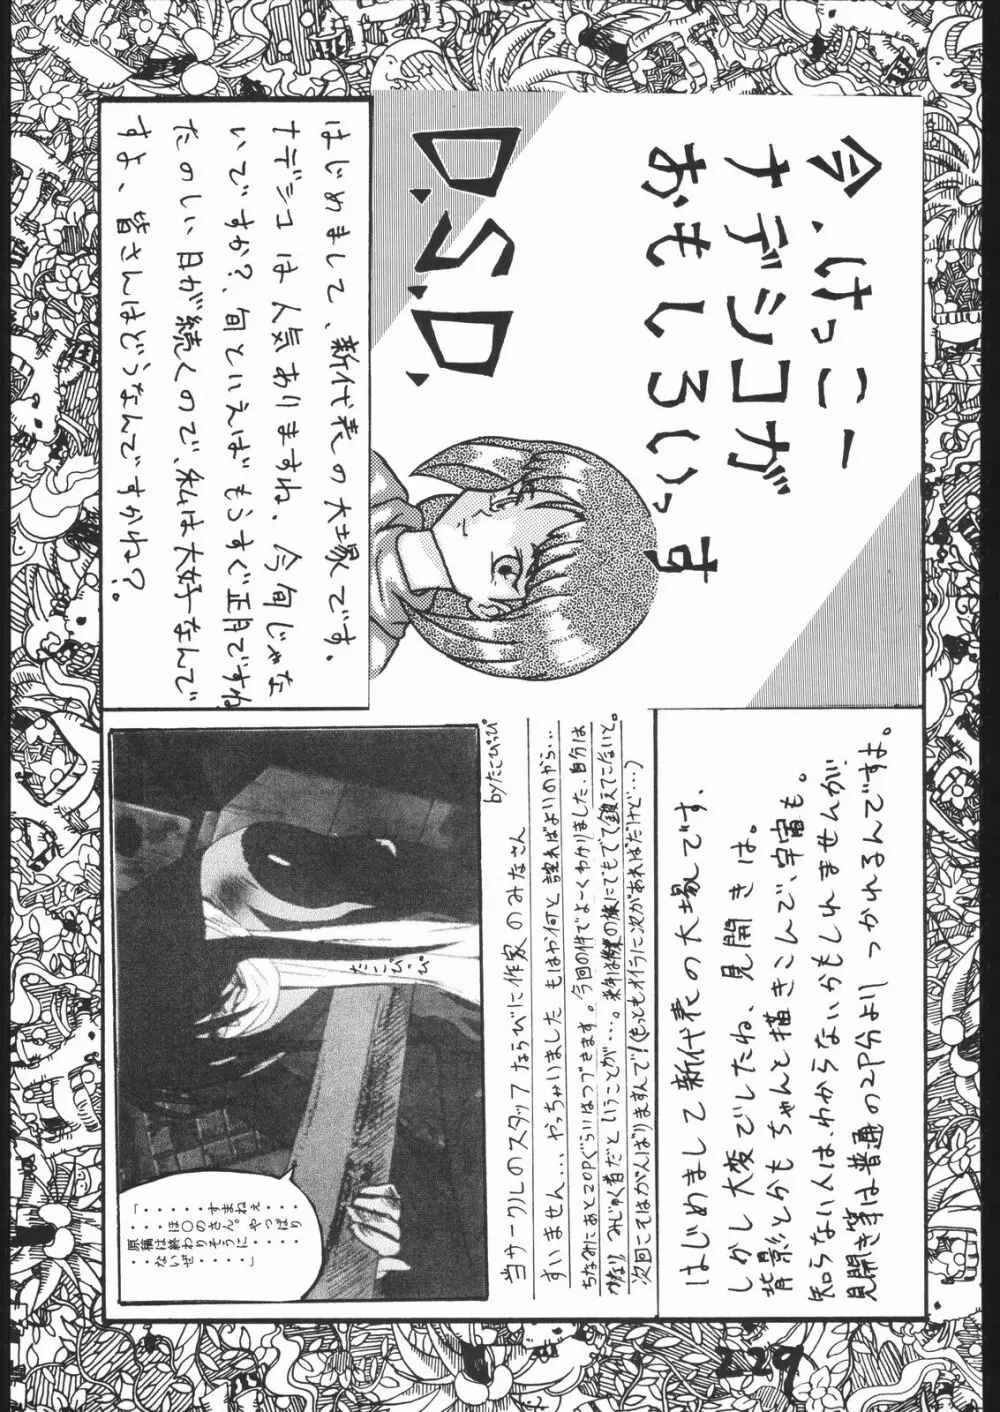 今、けっこー
ナデシコが
おもしろいっす
D.S.D.
はじめまして、新代表の大塚です。
ナデシコは人気ありますね、今旬じゃな
いですか?、旬といえばもうすぐ正月ですね
たのしい日が続くので、私は大好なんで
すよ、皆さんはどうなんですかね?。
はじめまして新代表の大塚です、
しかし大変でしたね、見開きは。
背景とかもちゃんと描きこんで、宇宙も。
知らない人は、わからないかもしれませんが
見開き等は普通の2P分より つかれるんですよ。
当サークルのスタッフならびに作家のみなさん
すいません… やっちゃいました もはや何と詫ればよいのやら…
ちなみにあと20Pぐらいはつづきます。今回の件でよーくわかりました、自分は
かなり みじゅく者だということが…。来年は樹の旅にでもでて鍛えてこないと。
次回こそはがんばりますんで!(もっともオイラに次があればだけど…)
byたこぴっぴ
たこぴっぴ
「・・・・・・すまねぇ・・・
・・・ほ〇のさん。やっぱり
原稿は終わりそうに・・・・・
・・ないぜ・・・・」
129